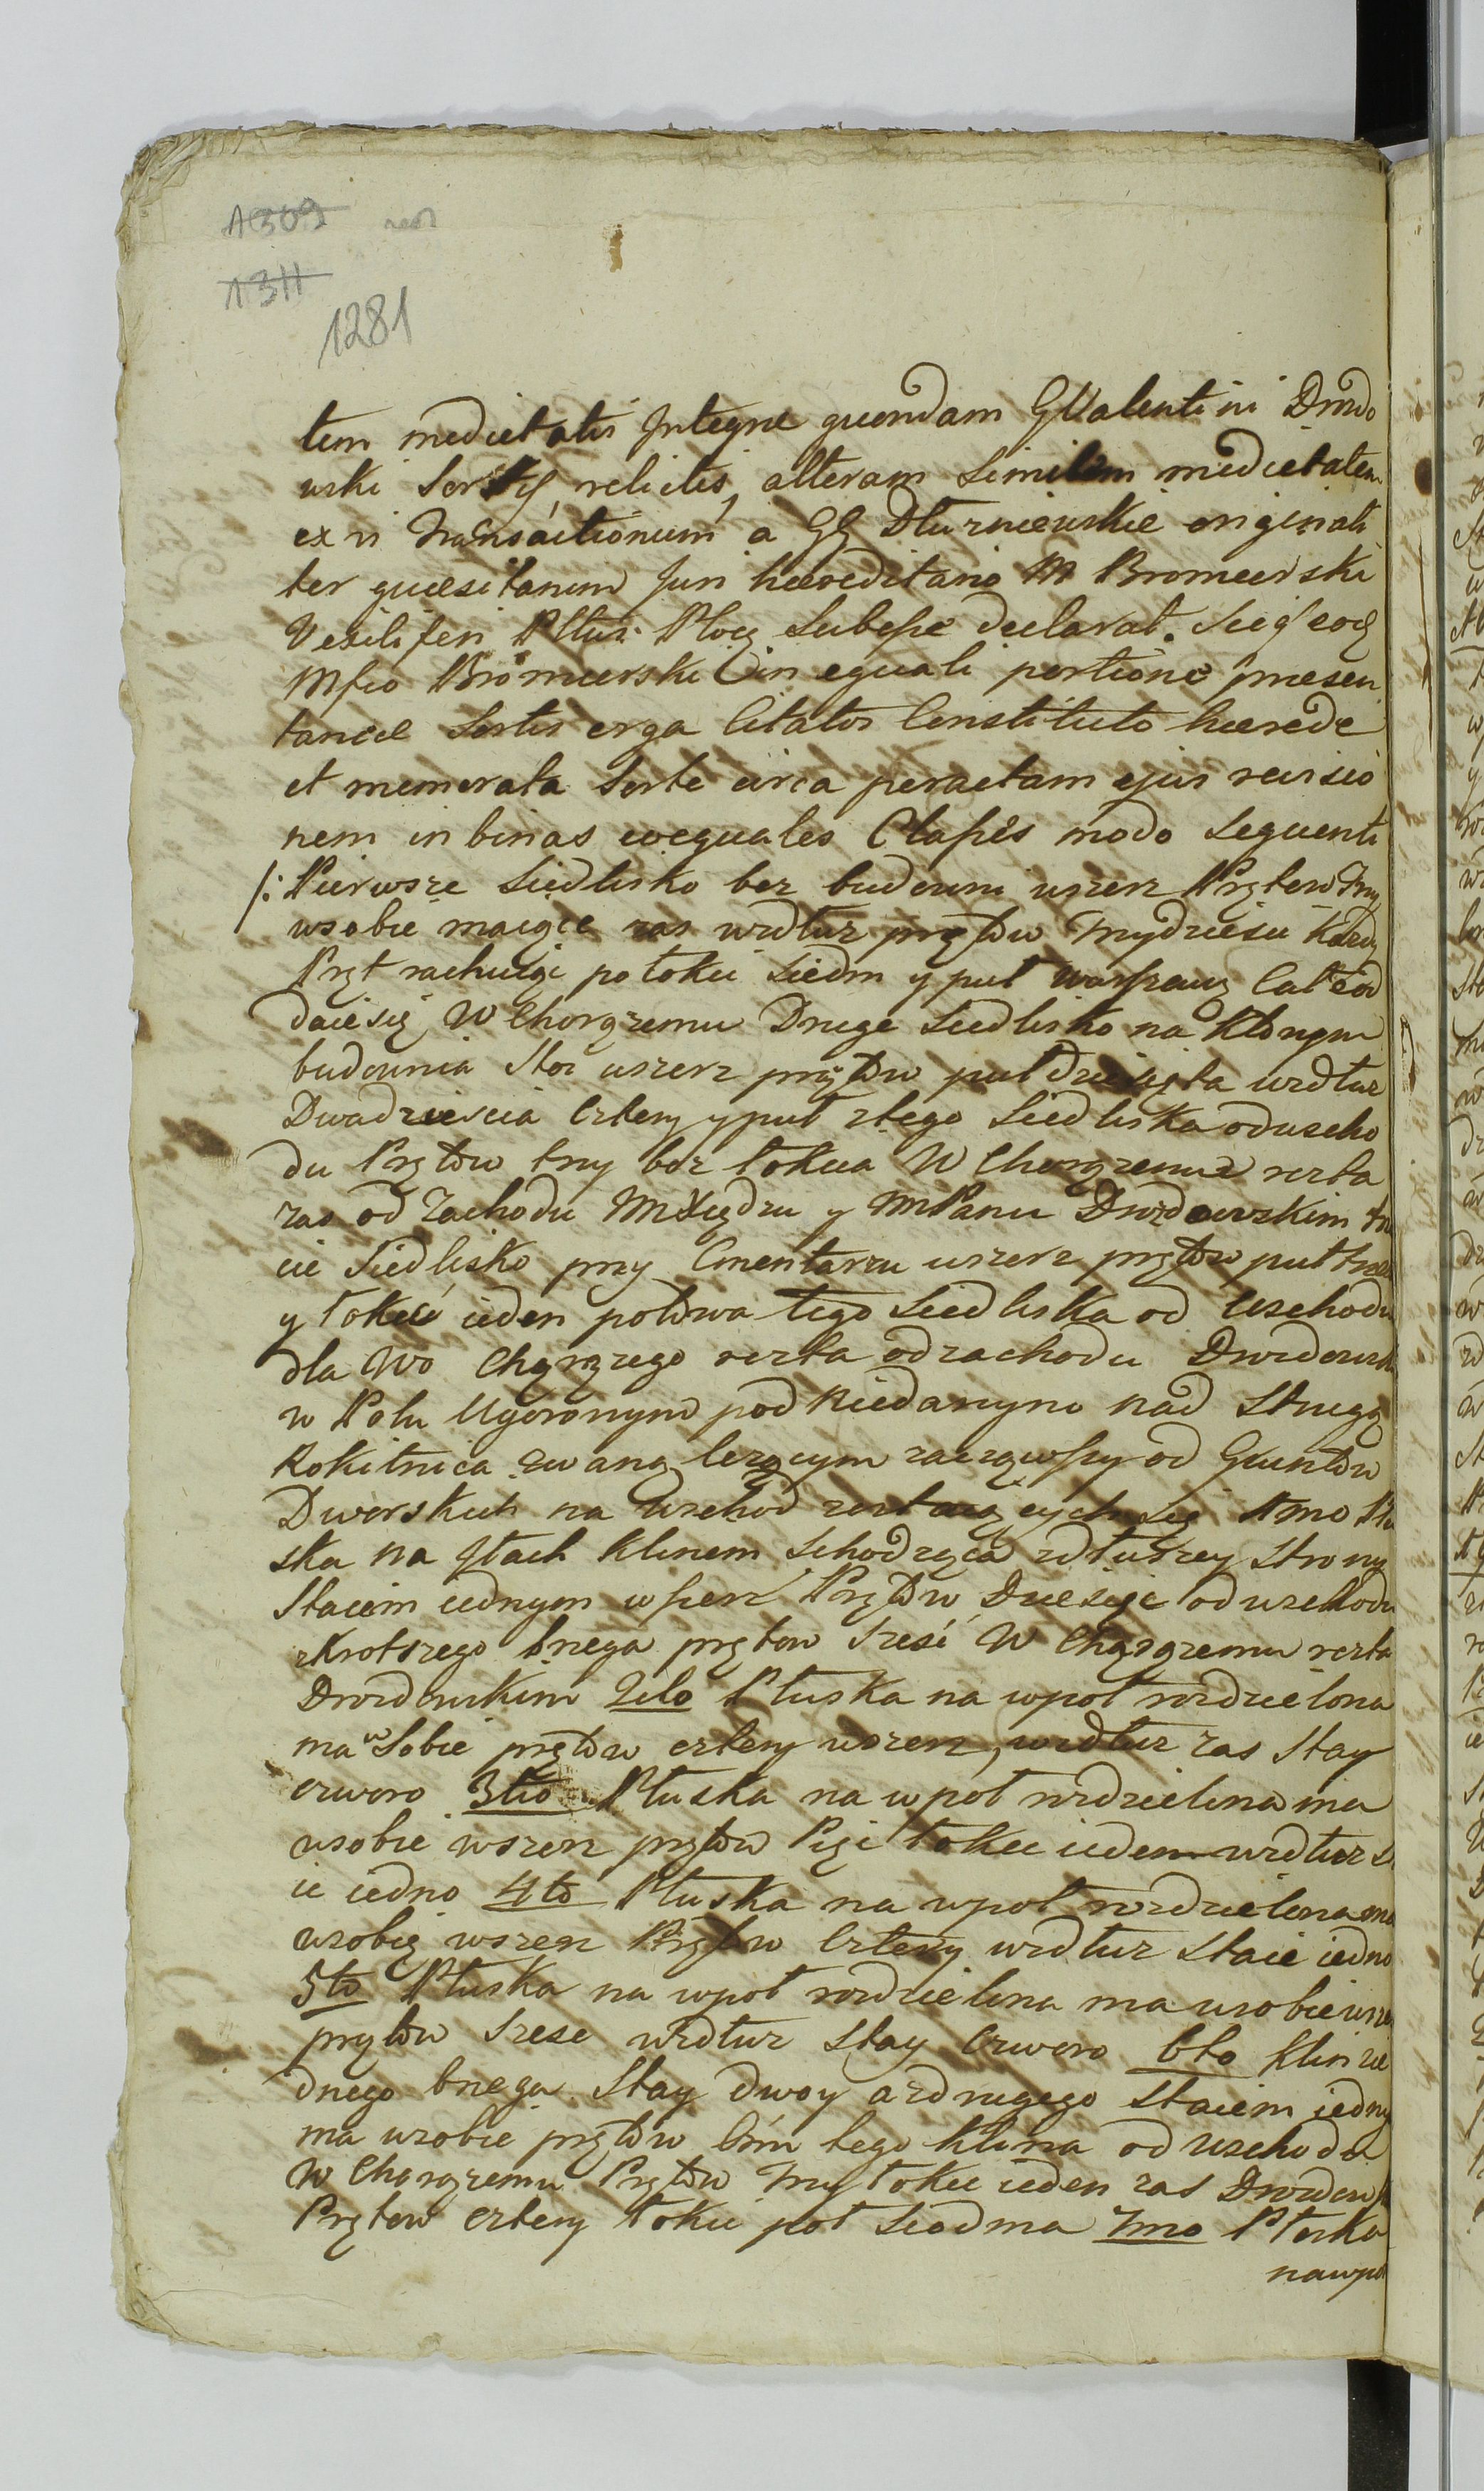 1309
1311
1281
tem medietatis Integræ quondam G Valentini Drozdo
wski Sortis relictis, alteram Similem medietatem
ex vi Transactionum a GG Dłuzniewskie originali
ter quæsitarum Juri hæreditario M Bromierski
Vexiliferi Płtus: Płoc Subesse declarat. Sicq eod
Mfico Bromierski in equali portione præsen
tancæ Sortis erga Citatos Constituto hærede
et memorata Sorte circa peractam ejus revisio
nem in binas coequales Classes modo Sequenti
/: Pierwsze Siedlisko bez budowni wszerz Prętow Trzy
wsobie maiące zas wzdłuz prętow Trzydziesci Kazdy
Pręt rachuiąc po łokci Siedm y puł Warszaws Całe od
daie się W Chorązemu Drugie Siedlisko na Ktorym
budownia Stoi wszerz prętow puł dziesięta wzdłuz
Dwadziescia Cztery y puł ztego Siedliska od wscho
du Prętow trzy bez łokcia W Chorązemu reszta
zas od Zachodu MXiędzu y MPanu Drozdowskim trze
cie Siedlisko przy Cmentarzu wszerz prętow puł trzecia
y łokieć ieden połowa tego Siedliska od Wschodu
dla Wo Chorązego reszta od zachodu Drozdowski
w Polu Ugoronym pod Niedanym nad Strugą
Rokitnica zwaną lezącym zacząwszy od Gruntow
Dworskich na Wschod rostaiących się 1mo Płu
ska na Głach Klinem Schodzęca zdłuszey Strony
Staiem iednym wszerz Prętow Dziesięc od wschodu
zkrotszego brzega prętow Szesć W Chorązemu reszta
Drozdowskim 2do Płuska na wpoł rozdzielona
ma w Sobie prętow cztery wszerz, wzdłuz zas Stay
czworo 3tio Płuska na wpoł rozdzielona ma
wsobie wszerz prętow Pięc łokci ieden wzdłuz Sta
ie iedno 4to Płuska na wpoł rozdzielona ma
wsobie wszerz Prętow Cztery wzdłuz Staie iedno
5to Płuska na wpoł rozdzielona ma wsobie wsze
prętow Szesc wzdłuz Stay Czworo 6to Klin ze
dnego brzega Stay dwoy a zdrugego Staiem iedny
ma wsobie prętow Osm tego Klina od Wschodu
W Chorązemu Prętow Trzy łokci ieden zas Drozdowsk
Prętow Cztery łokci poł Siodma 7mo Płuska
nawpoł